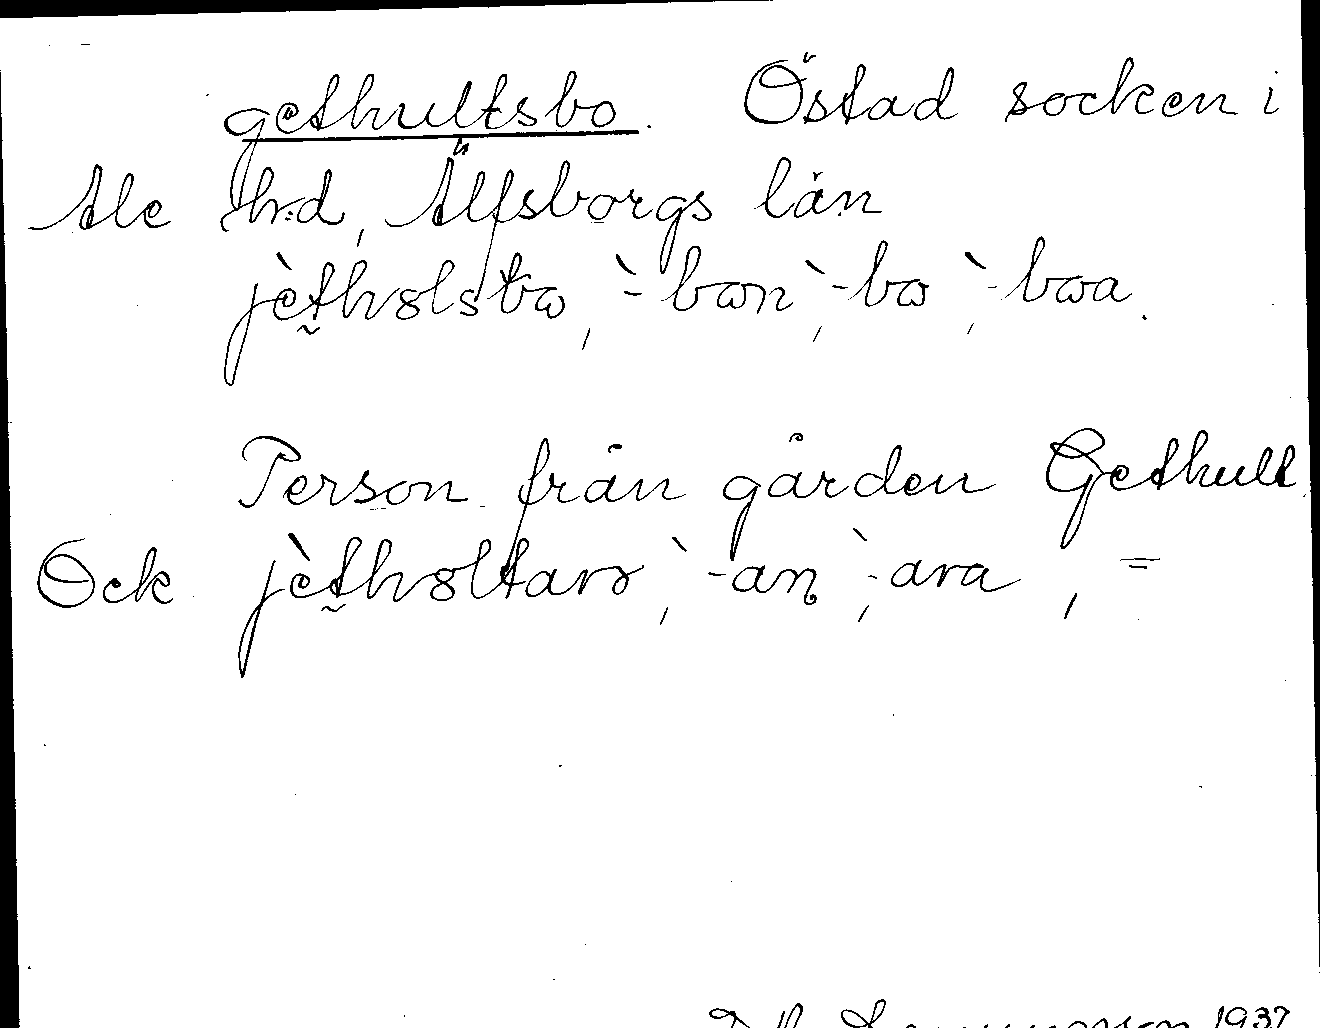 gethultsbo. Östad socken i
Ale h:d, Älfsborgs län
jètholsbo, `-bon, `-bo, `-boa.
Person från gården Gethult
Ock jètholtarə, `-an, `-ara, =
1937